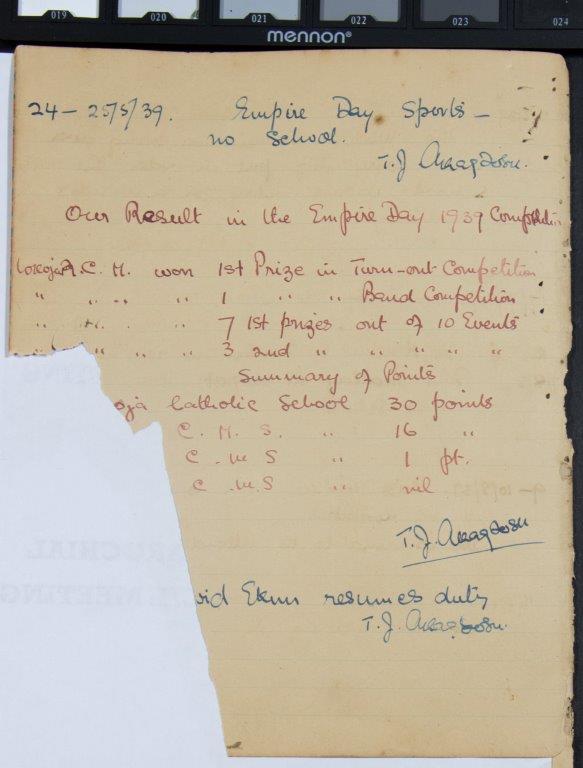 019 020 021 022 023 024
mennon
24 – 25/5/39. Empire Day Sports –
no School.
T. J
Our Result in the Empire Day 1939 Competition
Lokoja R.C.M. won 1st Prize in Turn-out Competition
" " " " 1 " " Band Competition
" " " 7 1st prizes out of 10 Events
" " " " 3 2nd " " " " "
Summary of Points
oja Catholic School 30 points
C. M. S. " 16 "
C. M. S " 1 pt.
C. M. S " nil
T. J.
vid resumes duty
T. J.